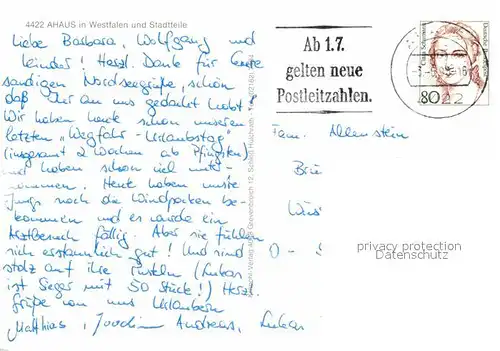 4422 AHAUS in Westfalen und Stadtteile
Liebe Barbara, Wolfgang und
Kinder! Herzl. Dank für Eure
sandigen Nordseegrüße, schön
daß Ihr an uns gedacht habt!
Wir haben heute schon unseren
letzten „Wegfahr-Urlaubstag"
(insgesamt 2 Wochen ab Pfingsten)
und haben schon viel mit-
nommen. Heute haben unsre
Jungs noch die Windpocken be-
kommen und es wurde ein
Arztbesuch fällig. Aber sie fühlen
sich erstaunlich gut! Und sind
stolz auf ihre Pusteln (Lukas
ist Sieger mit 50 Stück!) Herzl.
Grüße von uns Urlaubern
Matthias, Joachim Andreas, Lukas
Ab 1.7.
gelten neue
Postleitzahlen.
Clara Schumann
Deutsche
80
22
Fam. Allenstein
privacy protection
Datenschutz